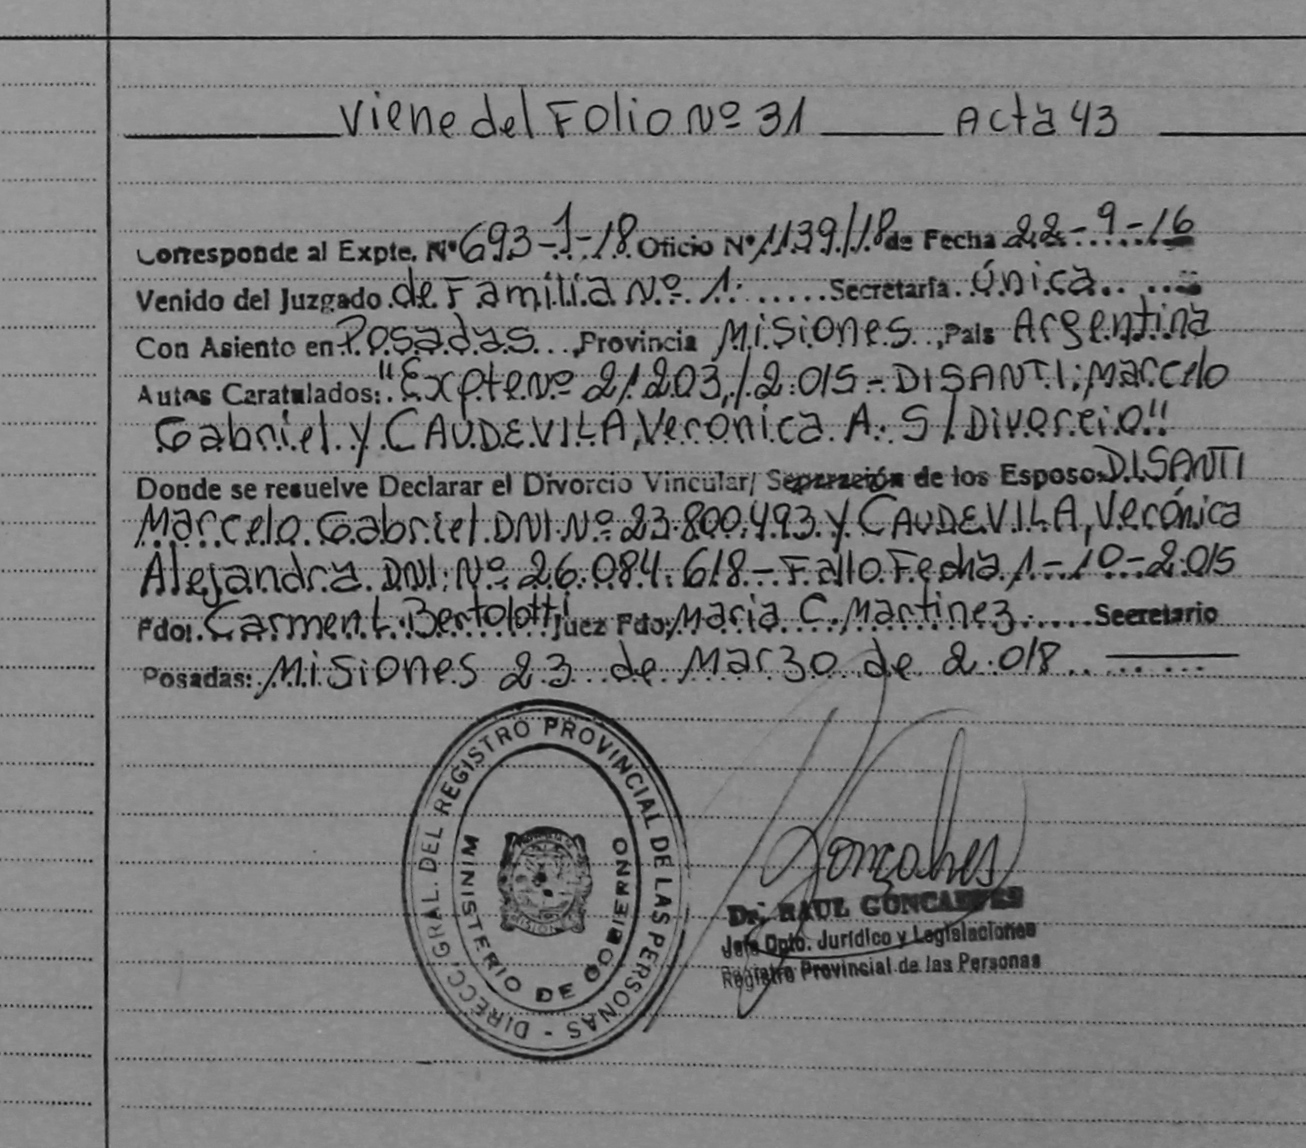 Viene del Folio Nº 31 Acta 43
Corresponde al Expte. Nº 693-1-18 Oficio Nº 1139/18 de Fecha 22-9-16
Venido del Juzgado de Familia Nº 1. Secretaría Única
Con Asiento en Posadas, Provincia Misiones, Pais Argentina
Autos Caratulados: "Expte Nº 21203/2.015-DISANTI; Marcelo
Gabriel y CAUDEVILA, Verónica A. S/Divorcio"
Donde se resuelve Declarar el Divorcio Vincular/ Separación de los Esposos DISANTI
Marcelo Gabriel DNI Nº 23.800.493 y CAUDEVILA, Verónica
Alejandra DNI: Nº 26.084.618-Fallo Fecha 1-10-2.015
Fdo: Carmen L. Bertolotti Juez Fdo: Maria C. Martinez Secretario
Posadas: Misiones 23 de Marzo de 2.018
DIRECC. GRAL. DEL REGISTRO PROVINCIAL DE LAS PERSONAS -
MINISTERIO DE GOBIERNO
Dr. RAUL GONCALVES
Jefe Dpto. Jurídico y Legislaciones
Registro Provincial de las Personas